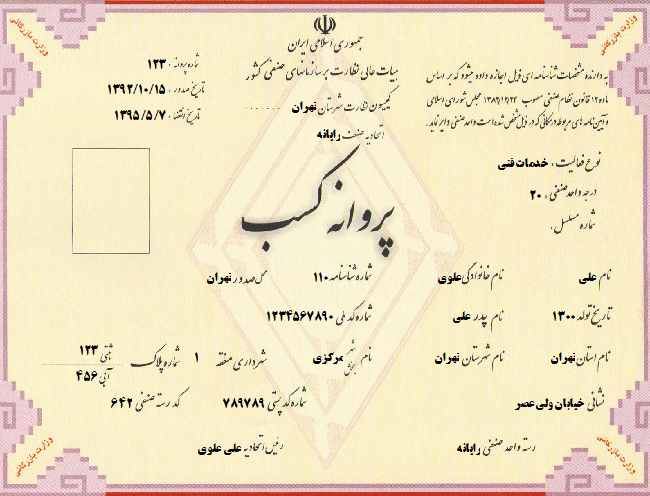 وزارت بازرگانی
وزارت بازرگانی
جمهوری اسلامی ایران
هیات عالی نظارت بر سازمانهای صنفی کشور
کمیسیون نظارت شهرستان تهران
اتحادیه صنف رایانه
شماره پروانه : ۱۲۳
تاریخ صدور : ۱۳۹۲/۱۰/۱۵
تاریخ انقضاء : ۱۳۹۵/۵/۷
به دارنده مشخصات شناسنامه ای ذیل اجازه داده میشود که بر اساس
ماده ۱۲ قانون نظام صنفی مصوب ۱۳۸۲/۱۲/۲۴ مجلس شورای اسلامی
و آیین نامه های مربوطه در مکانی که در ذیل مشخص شده است واحد صنفی دایر نماید.
نوع فعالیت : خدمات فنی
درجه واحد صنفی : ۲۰
شماره مسلسل :
پروانه کسب
نام علی نام خانوادگی علوی شماره شناسنامه ۱۱۰ محل صدور تهران
تاریخ تولد ۱۳۰۰ نام پدر علی شماره کد ملی ۱۲۳۴۵۶۷۸۹۰
نام استان تهران نام شهرستان تهران نام شهر بخش مرکزی شهرداری منطقه ۱ شماره پلاک ثبتی ۱۲۳ آبی ۴۵۶
نشانی خیابان ولی عصر شماره کد پستی ۷۸۹۷۸۹ کد رسته صنفی ۶۴۲
رسته واحد صنفی رایانه رئیس اتحادیه علی علوی
وزارت بازرگانی
وزارت بازرگانی